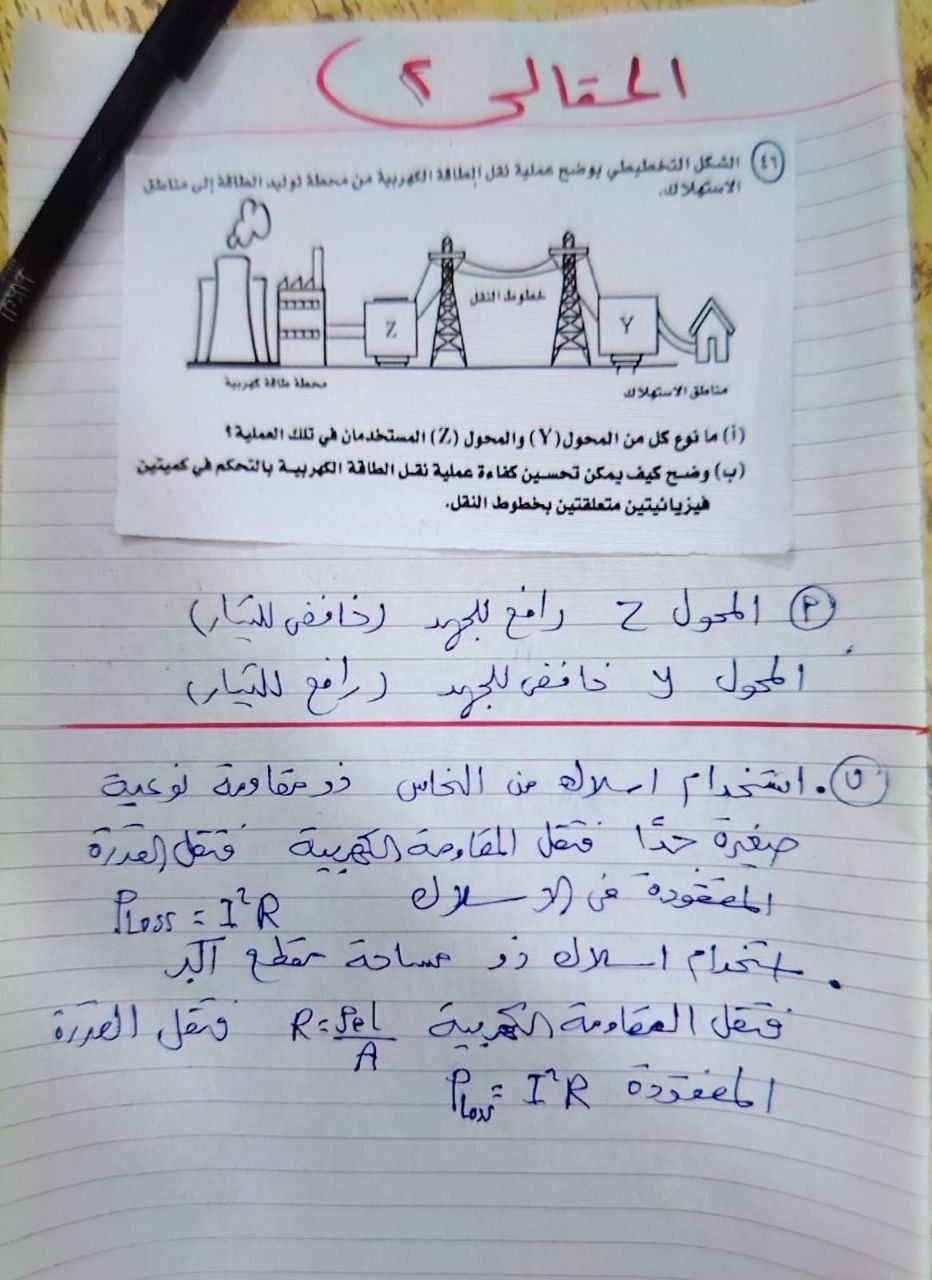 المقالى ٢)
٤٦ الشكل التخطيطي يوضح عملية نقل الطاقة الكهربية من محطة توليد الطاقة إلى مناطق
الاستهلاك.
خطوط النقل
Z
Y
محطة طاقة كهربية
مناطق الاستهلاك
(أ) ما نوع كل من المحول (Y) والمحول (Z) المستخدمان في تلك العملية؟
(ب) وضح كيف يمكن تحسين كفاءة عملية نقل الطاقة الكهربية بالتحكم في كميتين
فيزيائيتين متعلقتين بخطوط النقل.
أ المحول Z رافع للجهد (خافض للتيار)
المحول y خافض للجهد (رافع للتيار)
ب . استخدام اسلاك من النحاس ذو مقاومة نوعية
صغيرة جدًا فتقل المقاومة الكهربية فتقل القدرة
المفقودة فى الاسلاك P_Loss = I²R
. استخدام اسلاك ذو مساحة مقطع اكبر
فتقل المقاومة الكهربية R = ρe l / A فتقل القدرة
المفقودة P_Loss = I²R